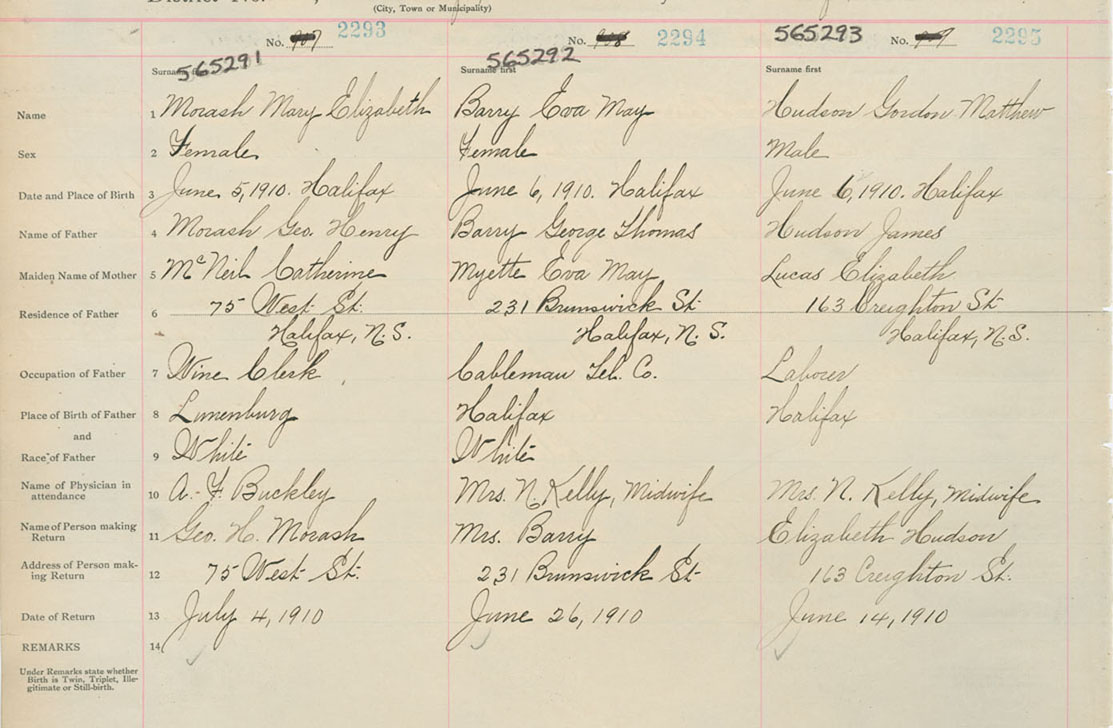 (City, Town or Municipality)
No. 907 2293 No. 908 2294 565293 No. 909 2295
565291 565292
Surname first Surname first Surname first
Name 1 Morash Mary Elizabeth Barry Eva May Hudson Gordon Matthew
Sex 2 Female Female Male
Date and Place of Birth 3 June 5, 1910. Halifax June 6, 1910. Halifax June 6, 1910. Halifax
Name of Father 4 Morash Geo. Henry Barry George Thomas Hudson James
Maiden Name of Mother 5 McNeil Catherine Myette Eva May Lucas Elizabeth
Residence of Father 6 75 West St. 231 Brunswick St 163 Creighton St
Halifax, N.S. Halifax, N.S. Halifax, N.S.
Occupation of Father 7 Wine Clerk Cableman Tel. Co. Labourer
Place of Birth of Father 8 Lunenburg Halifax Halifax
and
Race of Father 9 White White
Name of Physician in
attendance 10 A. F. Buckley Mrs. N. Kelly, Midwife Mrs. N. Kelly, Midwife
Name of Person making
Return 11 Geo. H. Morash Mrs. Barry Elizabeth Hudson
Address of Person mak-
ing Return 12 75 West St. 231 Brunswick St 163 Creighton St.
Date of Return 13 July 4, 1910 June 26, 1910 June 14, 1910
REMARKS 14
Under Remarks state whether
Birth is Twin, Triplet, Ille-
gitimate or Still-birth.